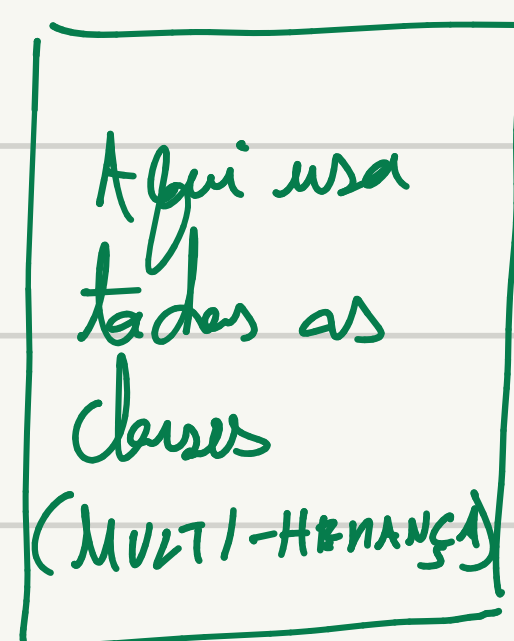 Aqui usa
todas as
classes
(MULTI-HERANÇA)